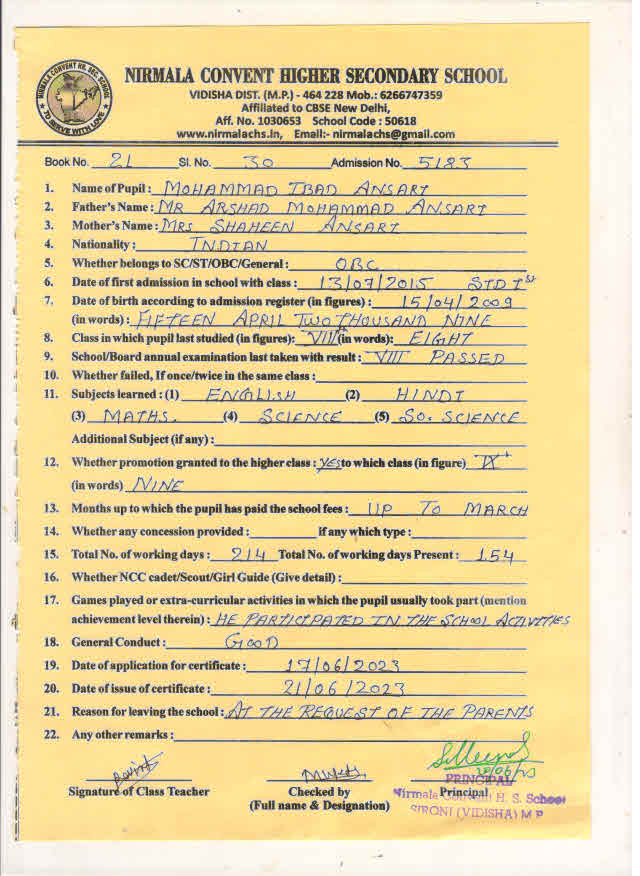 NIRMALA CONVENT HR. SEC. SCHOOL
TO SERVE WITH LOVE
NIRMALA CONVENT HIGHER SECONDARY SCHOOL
VIDISHA DIST. (M.P.) - 464 228 Mob.: 6266747359
Affiliated to CBSE New Delhi,
Aff. No. 1030653 School Code : 50618
www.nirmalachs.in, Email:- nirmalachs@gmail.com
Book No. 21 Sl. No. 30 Admission No. 5183
1. Name of Pupil : MOHAMMAD IBAD ANSARI
2. Father's Name : MR ARSHAD MOHAMMAD ANSARI
3. Mother's Name : MRS SHAHEEN ANSARI
4. Nationality : INDIAN
5. Whether belongs to SC/ST/OBC/General : OBC
6. Date of first admission in school with class : 13/07/2015 STD Ist
7. Date of birth according to admission register (in figures) : 15/04/2009
(in words) : FIFTEEN APRIL TWO THOUSAND NINE
8. Class in which pupil last studied (in figures): VIII (in words): EIGHT
9. School/Board annual examination last taken with result : VIII PASSED
10. Whether failed, If once/twice in the same class :
11. Subjects learned : (1) ENGLISH (2) HINDI
(3) MATHS. (4) SCIENCE (5) SO. SCIENCE
Additional Subject (if any) :
12. Whether promotion granted to the higher class : YES to which class (in figure) IX
(in words) NINE
13. Months up to which the pupil has paid the school fees : UP TO MARCH
14. Whether any concession provided : if any which type :
15. Total No. of working days : 214 Total No. of working days Present : 154
16. Whether NCC cadet/Scout/Girl Guide (Give detail) :
17. Games played or extra-curricular activities in which the pupil usually took part (mention
achievement level therein) : HE PARTICIPATED IN THE SCHOOL ACTIVITIES
18. General Conduct : GOOD
19. Date of application for certificate : 17/06/2023
20. Date of issue of certificate : 21/06/2023
21. Reason for leaving the school : AT THE REQUEST OF THE PARENTS
22. Any other remarks :
Signature of Class Teacher Checked by Principal
(Full name & Designation)
PRINCIPAL
Nirmala Convent H. S. School
SIRONJ (VIDISHA) M.P